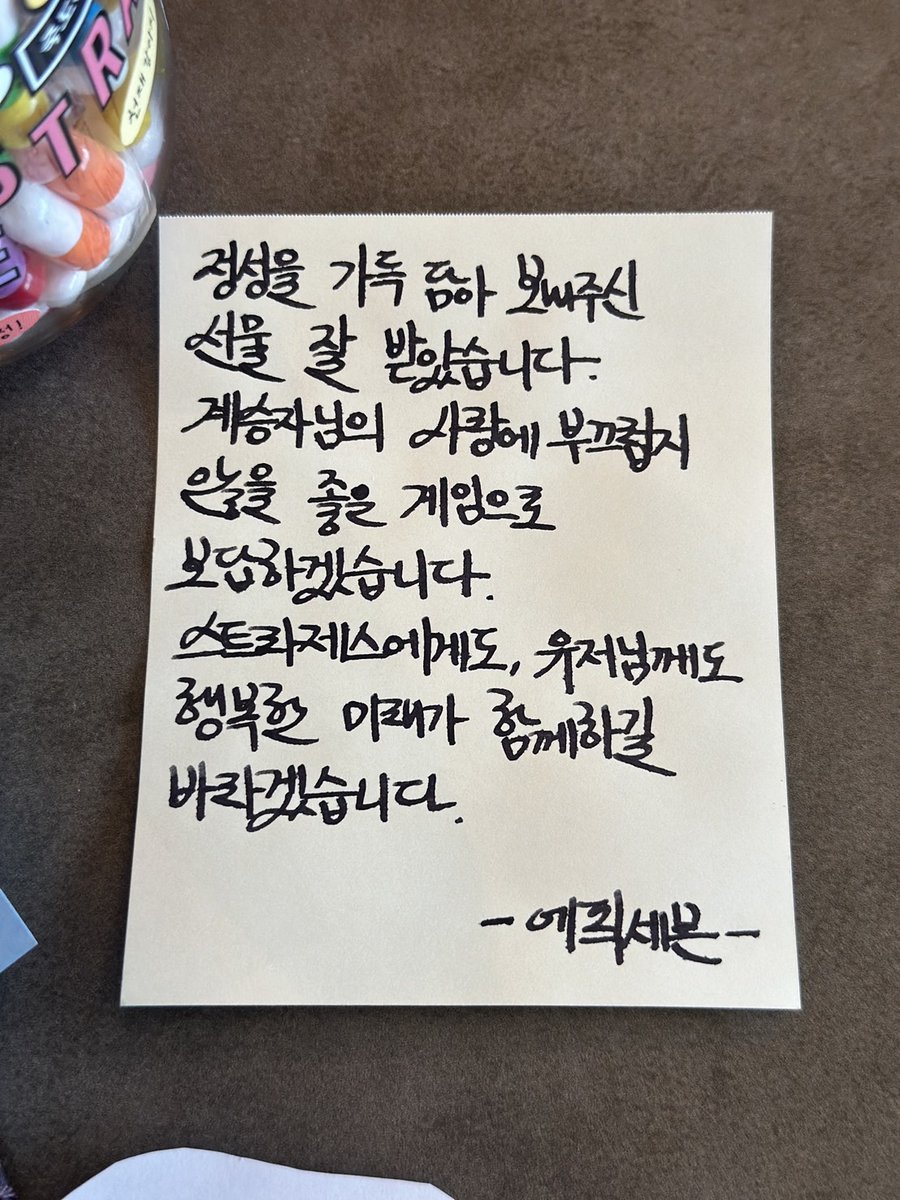 STRA
E
성!
정성을 가득 담아 보내주신
선물 잘 받았습니다.
계승자님의 사랑에 부끄럽지
않을 좋은 게임으로
보답하겠습니다.
스트라제스에게도, 유저님께도
행복한 미래가 함께하길
바라겠습니다.
-에픽세븐-